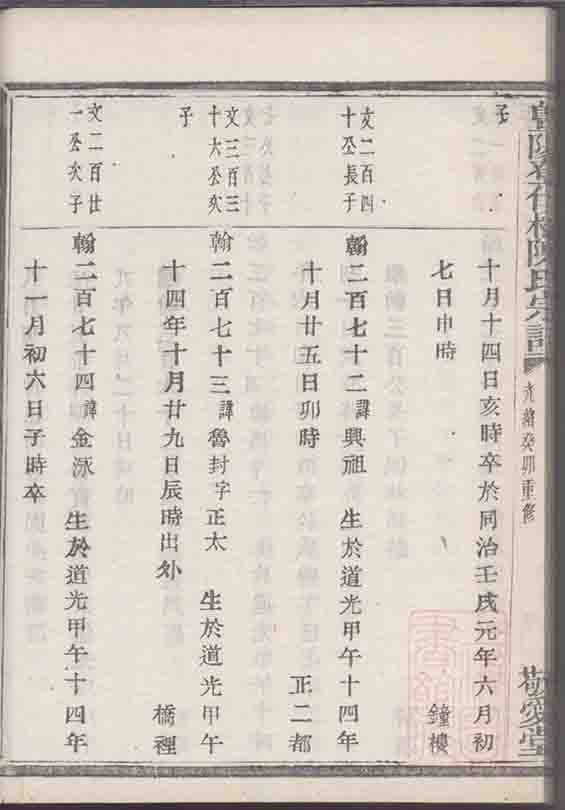 陳氏宗譜 光緒癸卯重修 敬愛堂
子
十月十四日亥時卒於同治壬戌元年六月初
七日申時 鐘樓
文二百四
十公長子
翰二百七十二諱興祖 生於道光甲午十四年
十月廿五日卯時 正二都
文三百三
十六公次
子
翰二百七十三諱魯封字正太 生於道光甲午
十四年十月廿九日辰時出外 橋裡
文二百廿
一公次子
翰二百七十四諱金泳 生於道光甲午十四年
十一月初六日子時卒